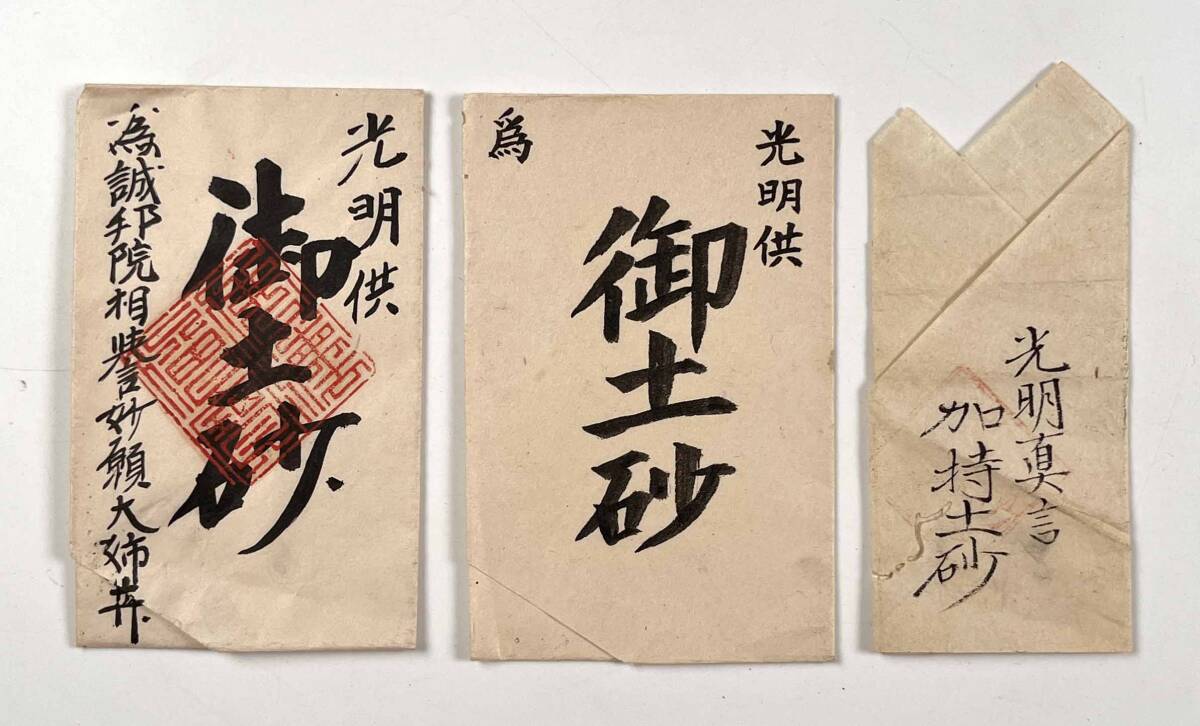 光明供
御土砂
為誠邦院相誉妙願大姉
光明供
御土砂
爲
光明真言
加持土砂